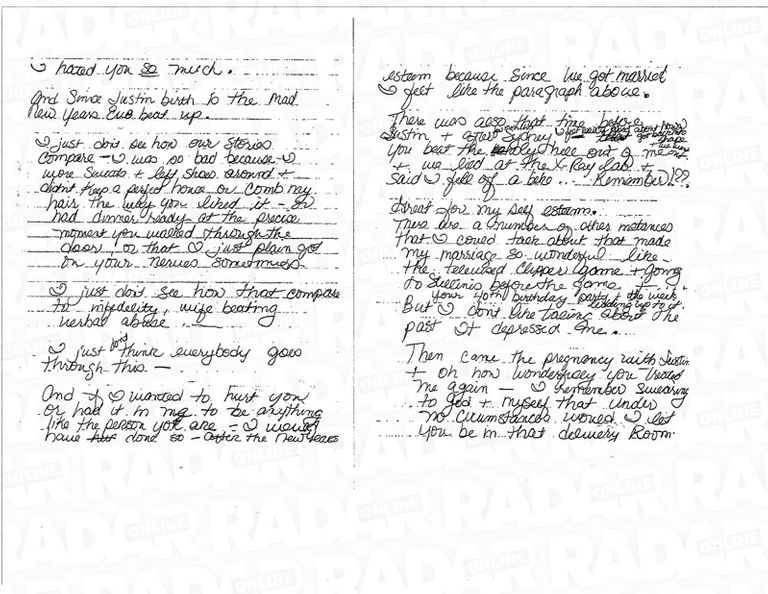 I hated you so much.
And since Justin birth to the mad
New Years Eve beat up.
I just don't see how our stories
compare - I was so bad because I
wore sweats + left shoes around +
didn't keep a perfect house or comb my
hair the way you liked it - or
had dinner ready at the precise
moment you walked through the
door or that I just plain got
on your nerves sometimes.
I just don't see how that compare
to infidelity, wife beating
verbal abuse
I just don't think everybody goes
through this -
And if I wanted to hurt you
or had it in me to be anything
like the person you are - I would
have done so - after the New Years
esteem because since we got married
I feel like the paragraph above.
There was also that time before
Justin + after Sydney
you beat the holy hell out of me and
+ we lied at the X-Ray lab +
said I fell off a bike... Remember!??
Great for my self esteem.
There are a number of other instances
that I could talk about that made
my marriage so wonderful like -
the televised Clipper game + going
to before the game +
your 40th birthday party + the week
leading up to it.
But I don't like talking about the
past It depressed me.
Then came the pregnancy with Justin
+ oh how wonderfully you treated
me again - I remember swearing
to God + myself that under
no circumstances would I let
you be in that delivery Room.
RADAR ONLINE